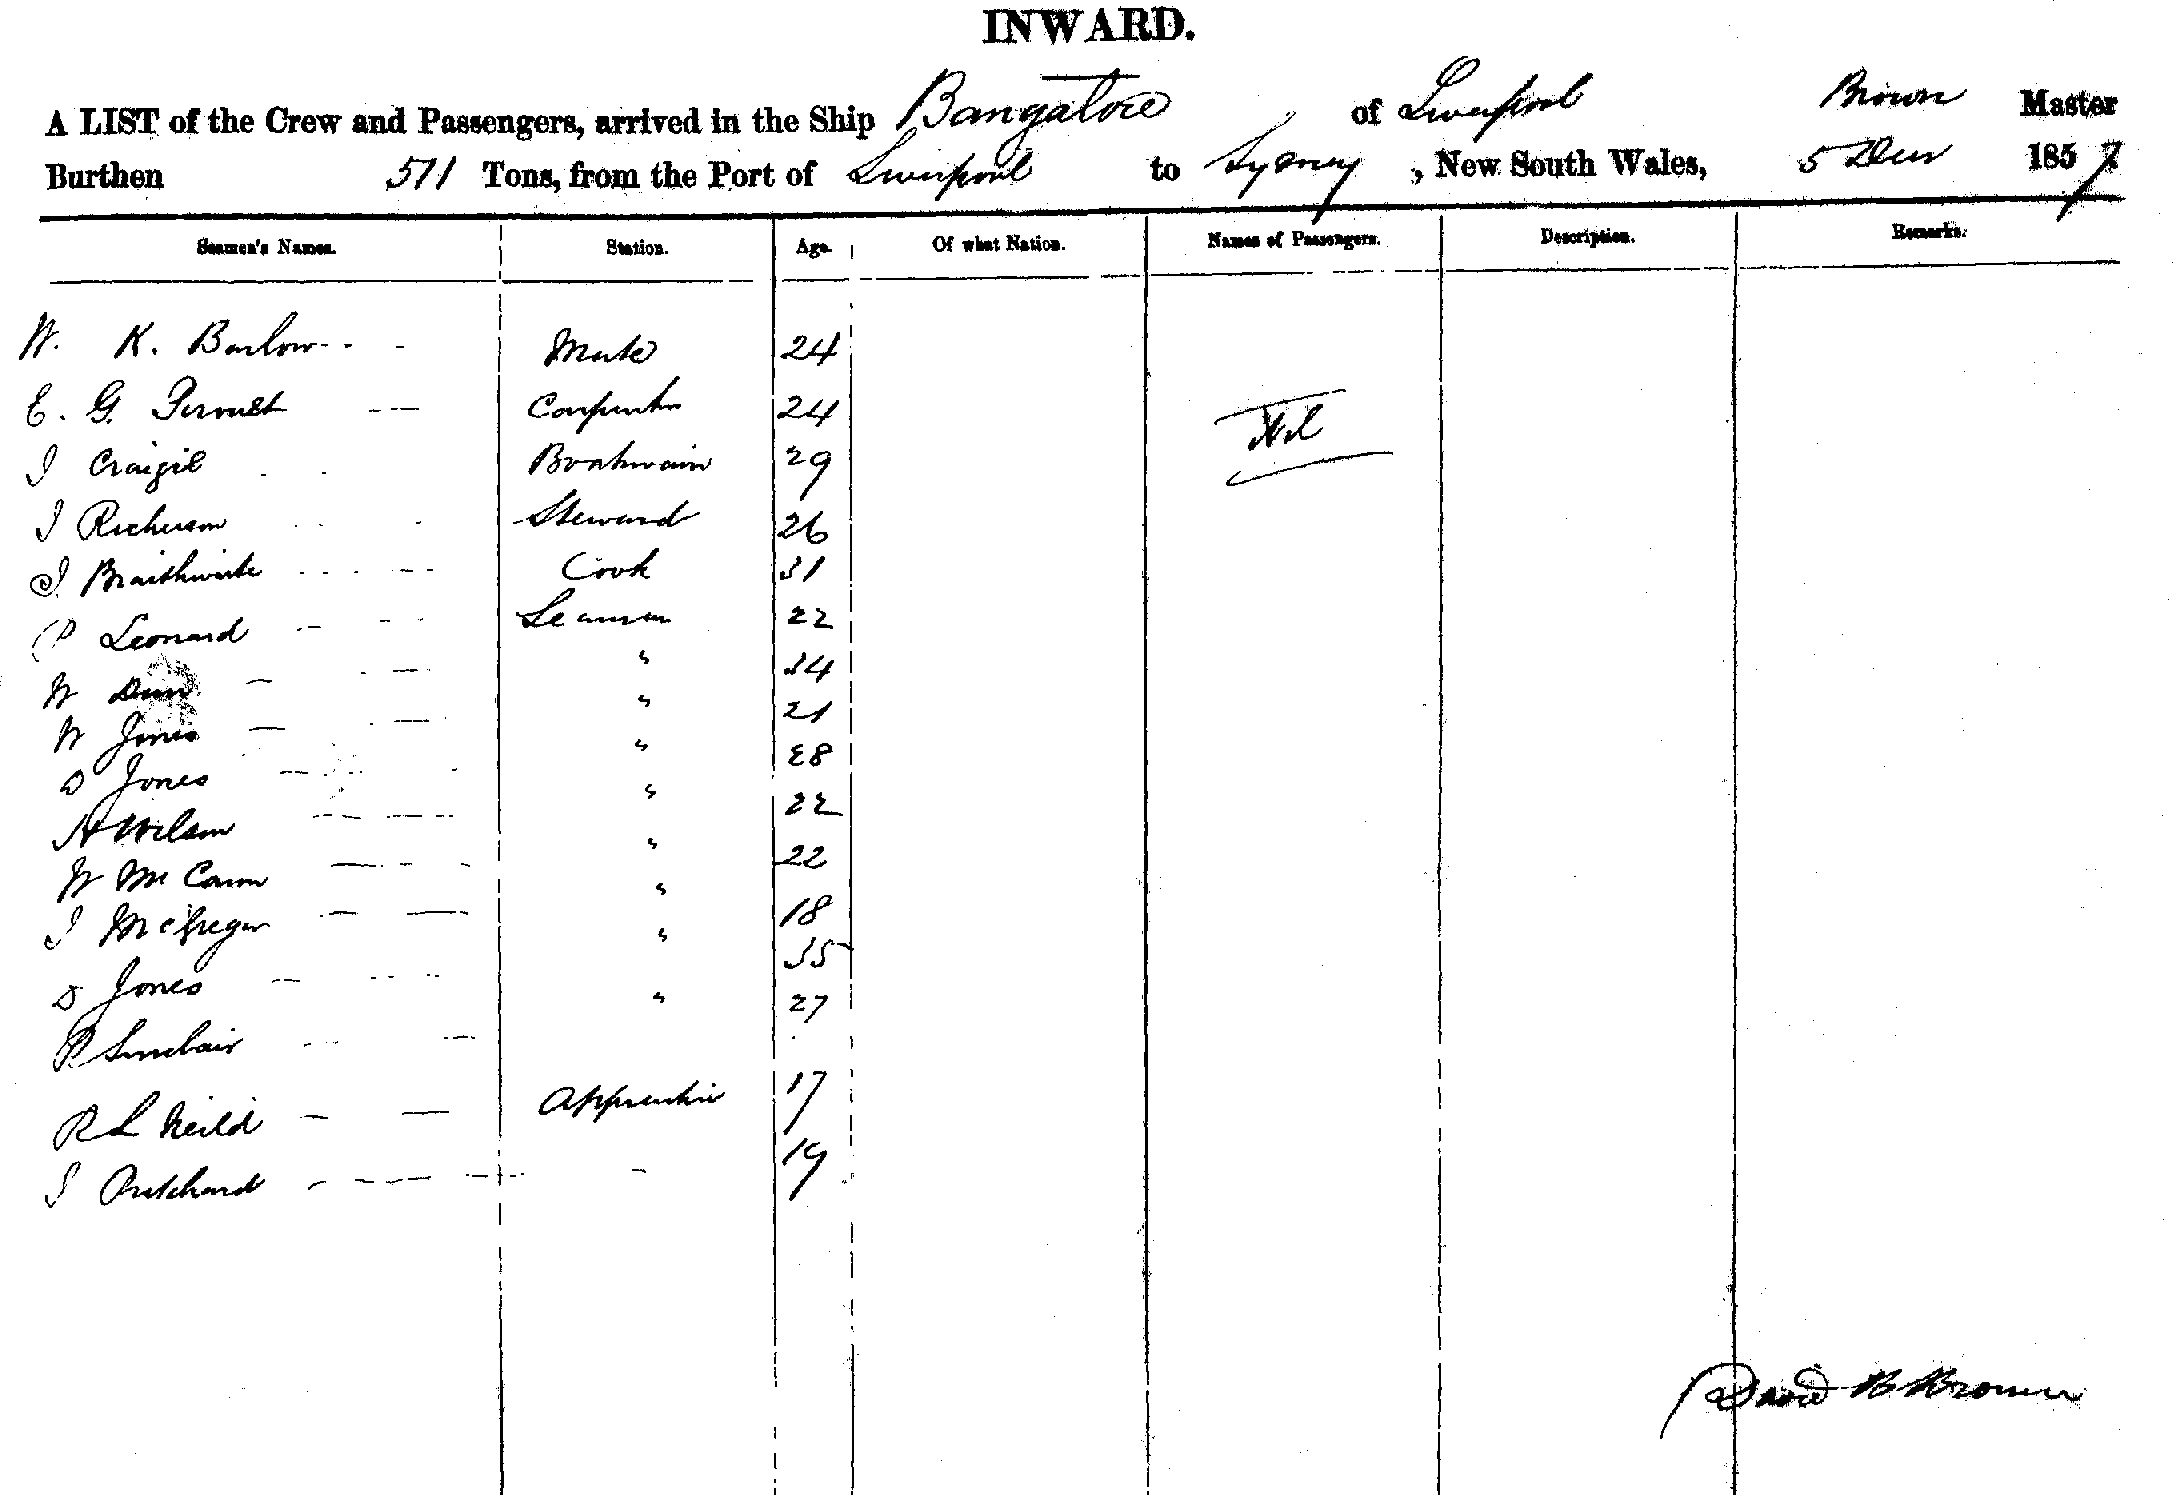 INWARD.
A LIST of the Crew and Passengers, arrived in the Ship Bangalore of Liverpool Brown Master
Burthen 511 Tons, from the Port of Liverpool to Sydney, New South Wales, 5 Decr 1857
Seamen's Names. Station. Age. Of what Nation. Names of Passengers. Description. Remarks.
W. K. Barlow Mate 24
E. G. Carpenter 24
Nil
J Craigil Boatswain 29
J Richerson Steward 26
J Braithwaite Cook 31
P Leonard Seaman 22
W Dunn " 34
W Jones " 21
D Jones " 28
H Wilson " 22
W McCann " 22
J McGregor " 18
D Jones " 35
P Sinclair " 27
R L Neild Apprentice 17
J Pritchard - 19
David B Brown